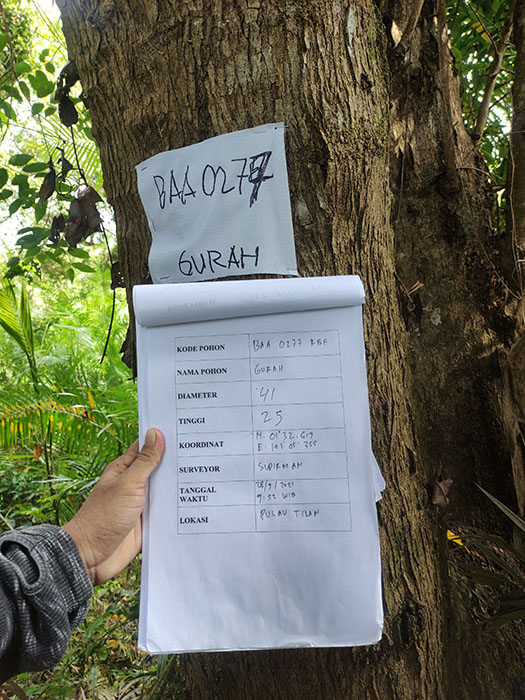 BAA 0277
GURAH
KODE POHON BAA 0277 RBF
NAMA POHON GURAH
DIAMETER 41
TINGGI 25
KOORDINAT N. 01°32.619
E. 101°05'355
SURVEYOR SUDIRMAN
TANGGAL 28/9/2021
WAKTU 9:52 WIB
LOKASI PULAU TILAN